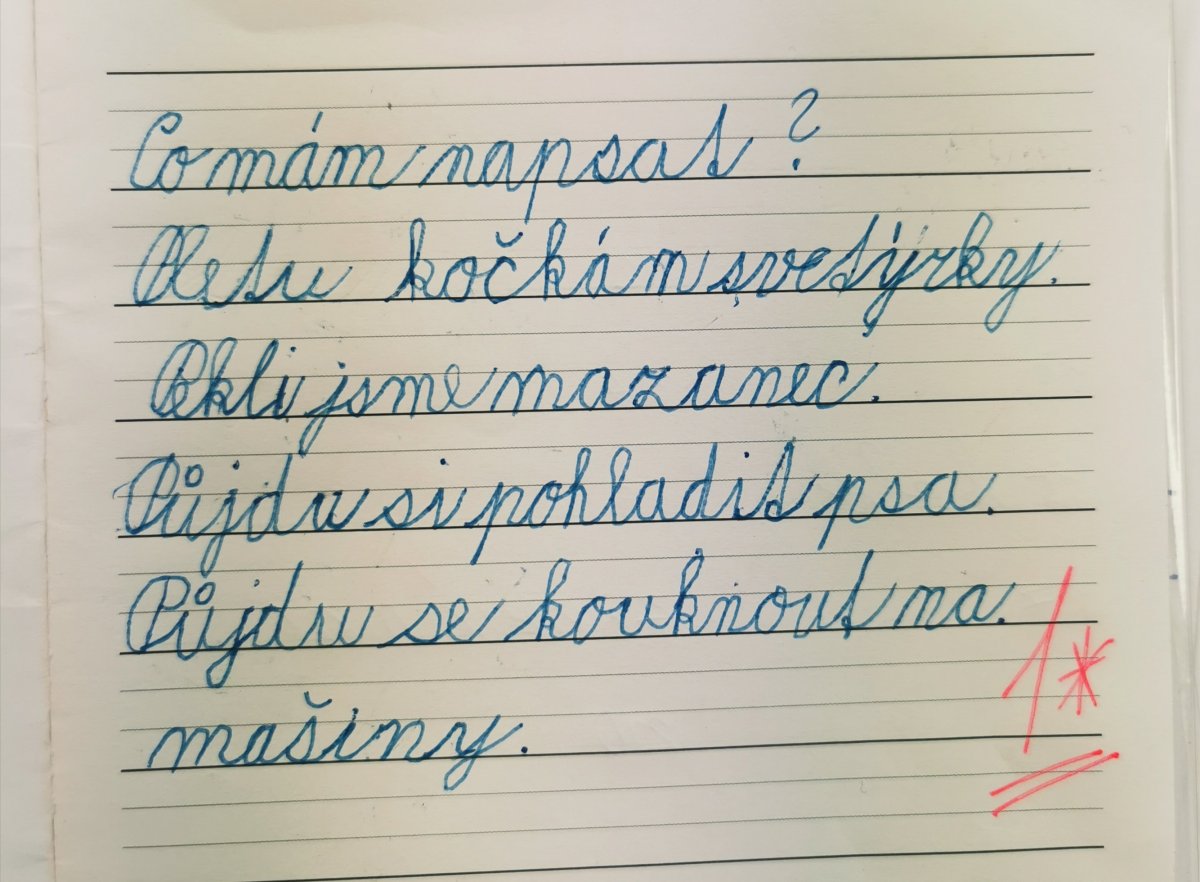 Co mám napsat?
Pletu kočkám svetýrky.
Pekli jsme mazanec.
Půjdu si pohladit psa.
Půjdu se kouknout na.
mašiny.
1*